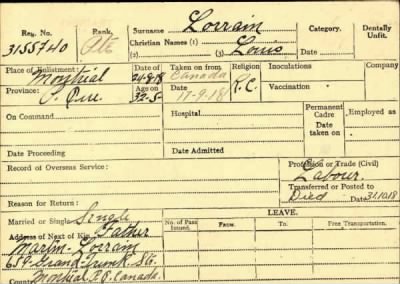 Reg. No. Rank. Surname Lorrain Category. Dentally Unfit.
3155740 Pte Christian Names (1) Louis
(2) (3) Died
Place of Enlistment Date of Taken on from Religion Inoculations
Montreal 24-8-18 Canada R.C.
Province: Age on 17-9-18 Vaccination
P. Que. 32-5
On Command Hospital Permanent Cadre Employed as
Date taken on
Date Proceeding Date Admitted
Record of Overseas Service: Profession or Trade (Civil)
Labour.
Transferred or Posted to
Reason for Return: Died Date 31.10.18
Married or Single Single LEAVE.
Address of Next of Kin, Father No. of Pass Issued. From. To. Free Transportation.
Martin Lorrain
659 Grand Trunk St.
County Montreal P.Q. Canada.